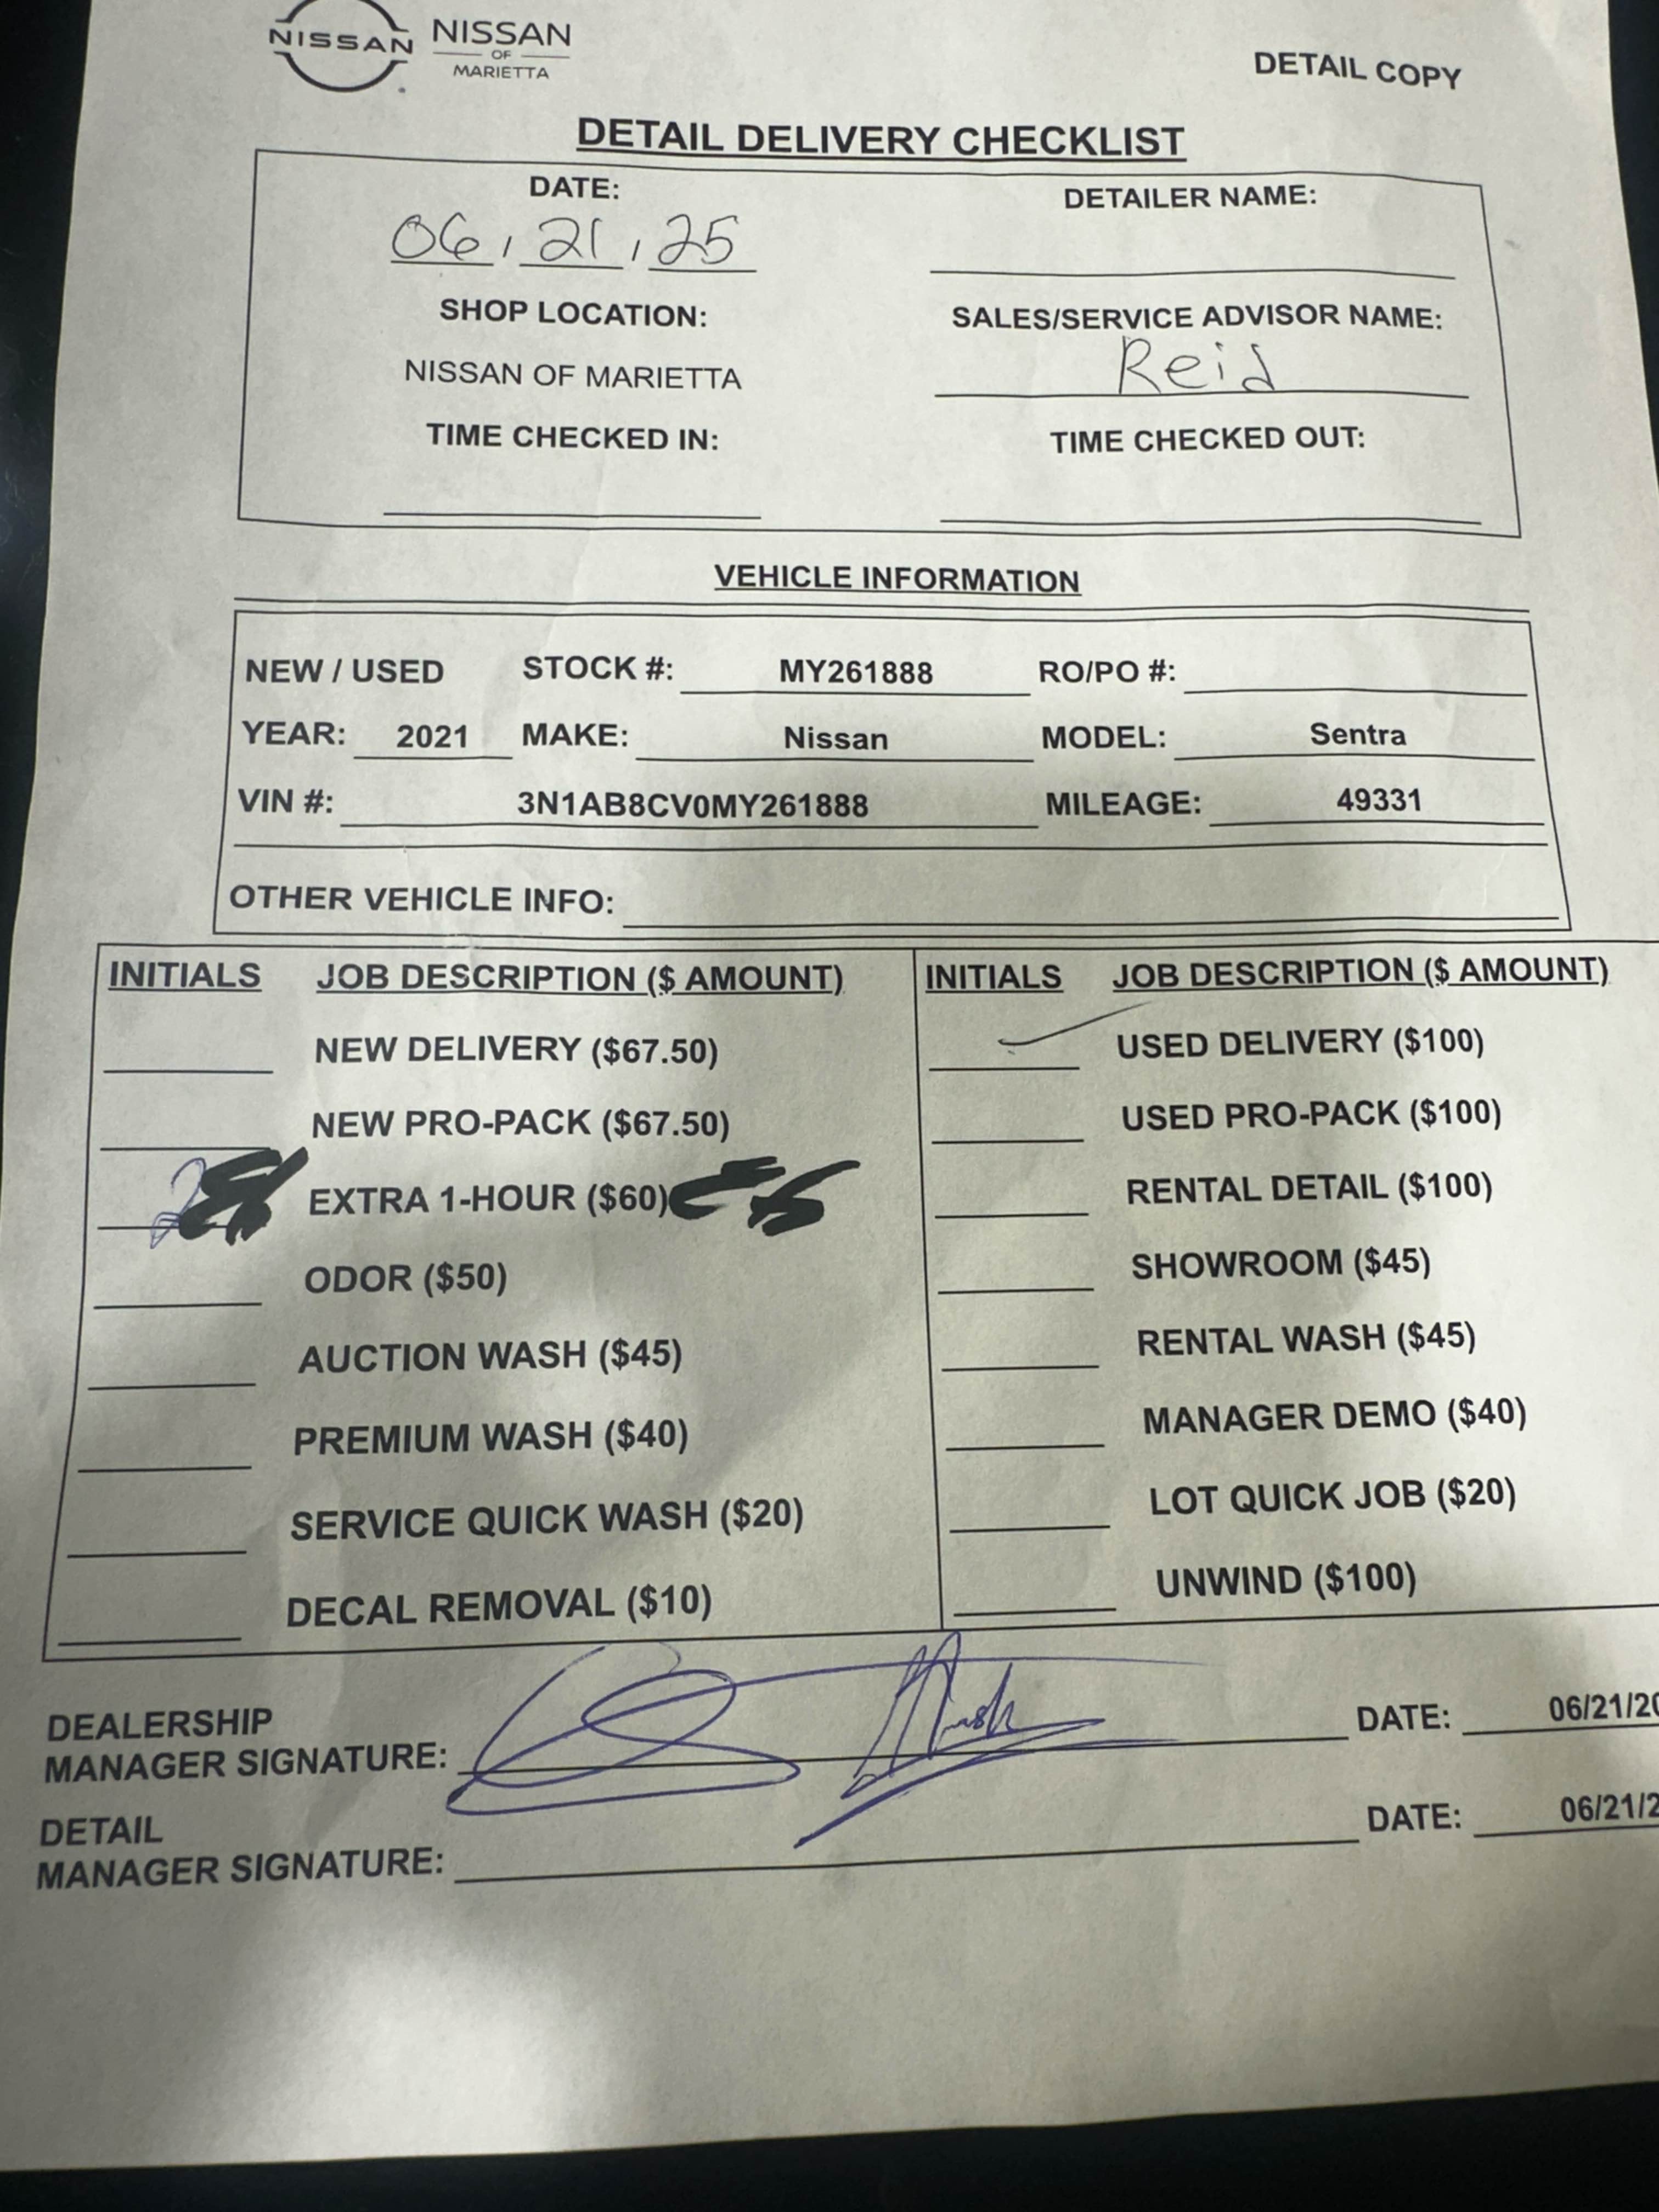 NISSAN NISSAN
OF
MARIETTA
DETAIL COPY
DETAIL DELIVERY CHECKLIST
DATE: DETAILER NAME:
06, 21, 25
SHOP LOCATION: SALES/SERVICE ADVISOR NAME:
NISSAN OF MARIETTA Reid
TIME CHECKED IN: TIME CHECKED OUT:
VEHICLE INFORMATION
NEW / USED STOCK #: MY261888 RO/PO #:
YEAR: 2021 MAKE: Nissan MODEL: Sentra
VIN #: 3N1AB8CV0MY261888 MILEAGE: 49331
OTHER VEHICLE INFO:
INITIALS JOB DESCRIPTION ($ AMOUNT) INITIALS JOB DESCRIPTION ($ AMOUNT)
NEW DELIVERY ($67.50) USED DELIVERY ($100)
NEW PRO-PACK ($67.50) USED PRO-PACK ($100)
EXTRA 1-HOUR ($60) RENTAL DETAIL ($100)
ODOR ($50) SHOWROOM ($45)
AUCTION WASH ($45) RENTAL WASH ($45)
PREMIUM WASH ($40) MANAGER DEMO ($40)
SERVICE QUICK WASH ($20) LOT QUICK JOB ($20)
DECAL REMOVAL ($10) UNWIND ($100)
DEALERSHIP
MANAGER SIGNATURE: DATE: 06/21/20
DETAIL
MANAGER SIGNATURE: DATE: 06/21/2